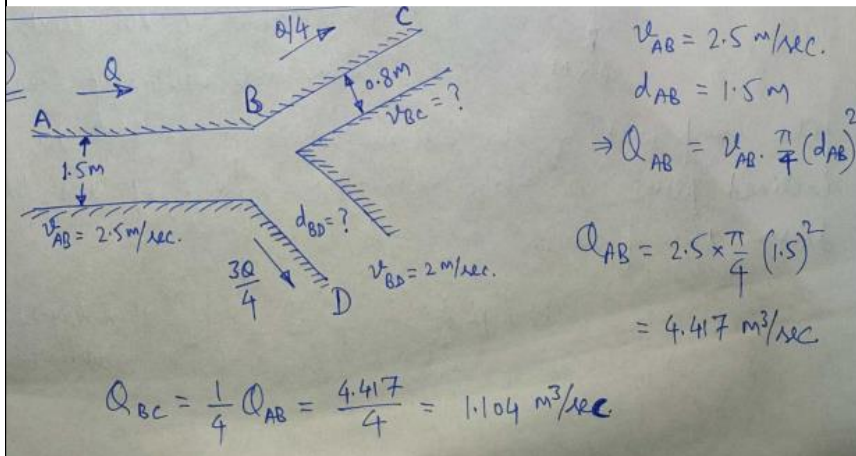 Q
Q/4
C
B
A
0.8m
v_BC = ?
1.5m
v_AB = 2.5 m/sec.
d_BD = ?
3Q/4
v_BD = 2 m/sec.
D
v_AB = 2.5 m/sec.
d_AB = 1.5 m
⇒ Q_AB = v_AB · π/4 (d_AB)²
Q_AB = 2.5 × π/4 (1.5)²
= 4.417 m³/sec
Q_BC = 1/4 Q_AB = 4.417/4 = 1.104 m³/sec.